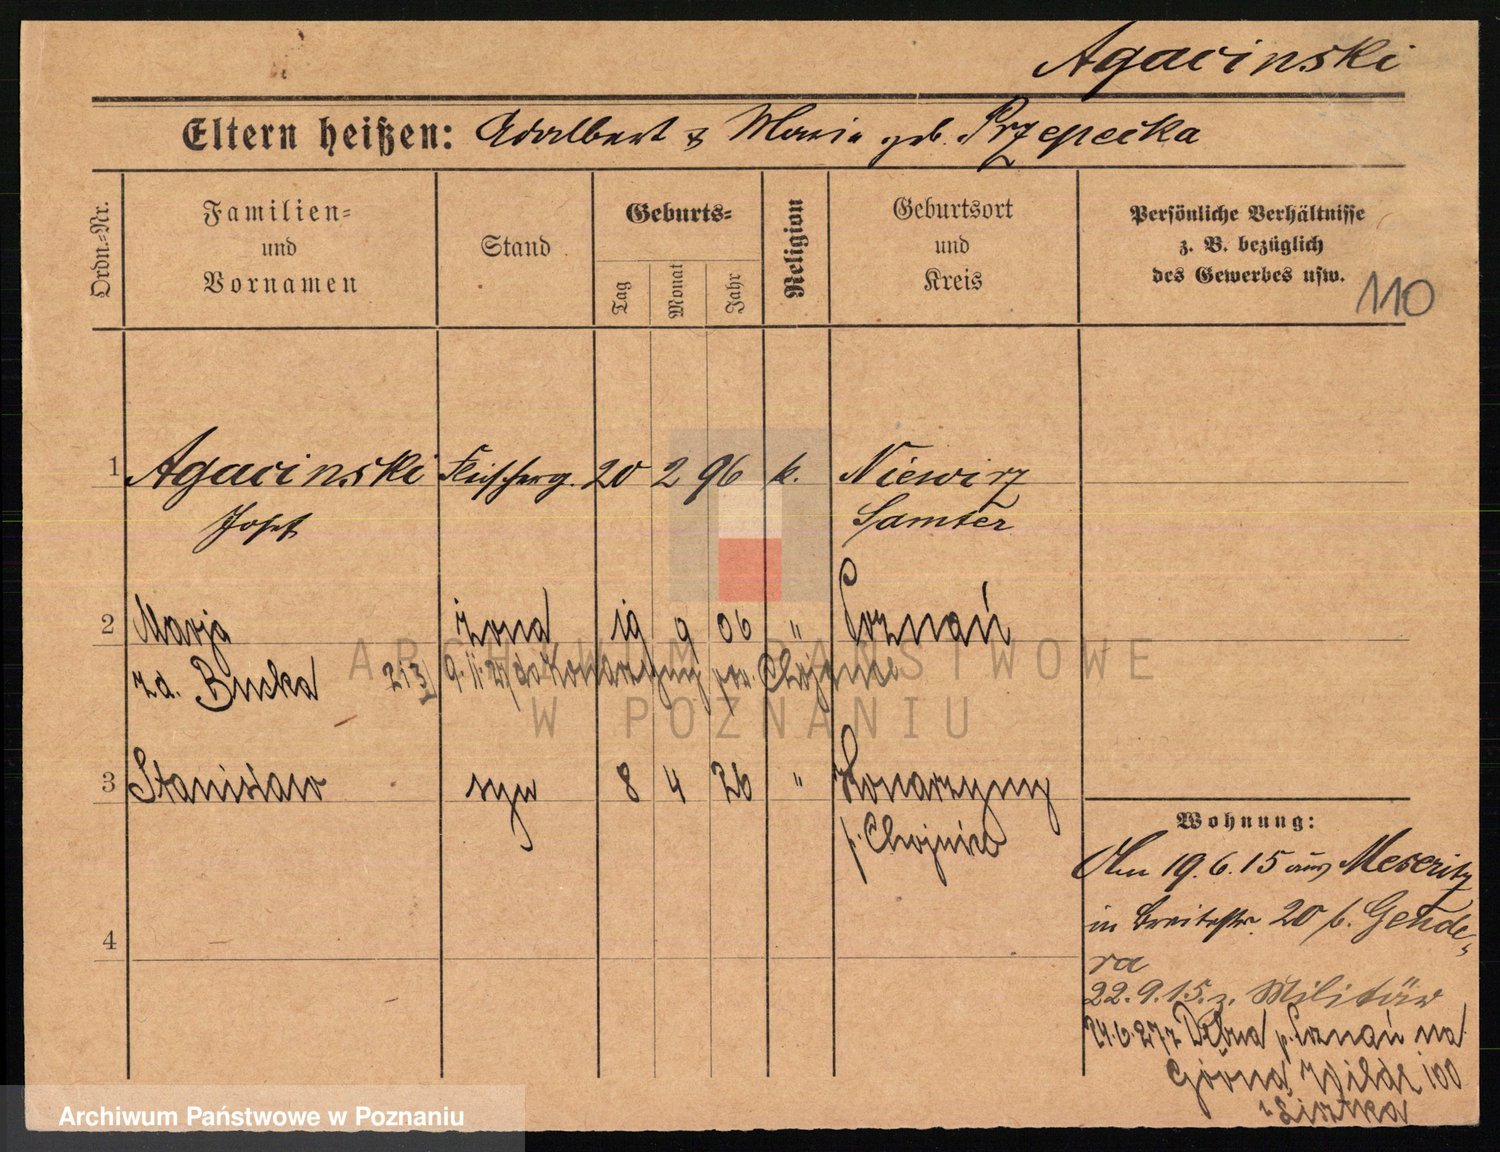 Agacinski
Eltern heißen: Adalbert & Maria geb. Przepecka
Ordn.=Nr.
Familien=
und
Vornamen
Stand
Geburts=
Tag
Monat
Jahr
Religion
Geburtsort
und
Kreis
Persönliche Verhältnisse
z. B. bezüglich
des Gewerbes usw.
110
1 Agacinski Fleischerg. 20 2 96 k. Niewirz
Josef Samter
2 Marja żona 19 9 06 " Poznań
z d. Bucka 213 9.11.27 do Konarzyny pow. Chojnice
3 Stanisław syn 8 4 26 " Konarzyny
p. Chojnice
4
Wohnung:
Am 19.6.15 aus Meseritz
in Breitestr. 20 b. Gende-
ra
22.9.15 z. Militär
24.6.27 z p. Poznań na
Górna Wilda 100
ARCHIWUM PAŃSTWOWE
W POZNANIU
Archiwum Państwowe w Poznaniu